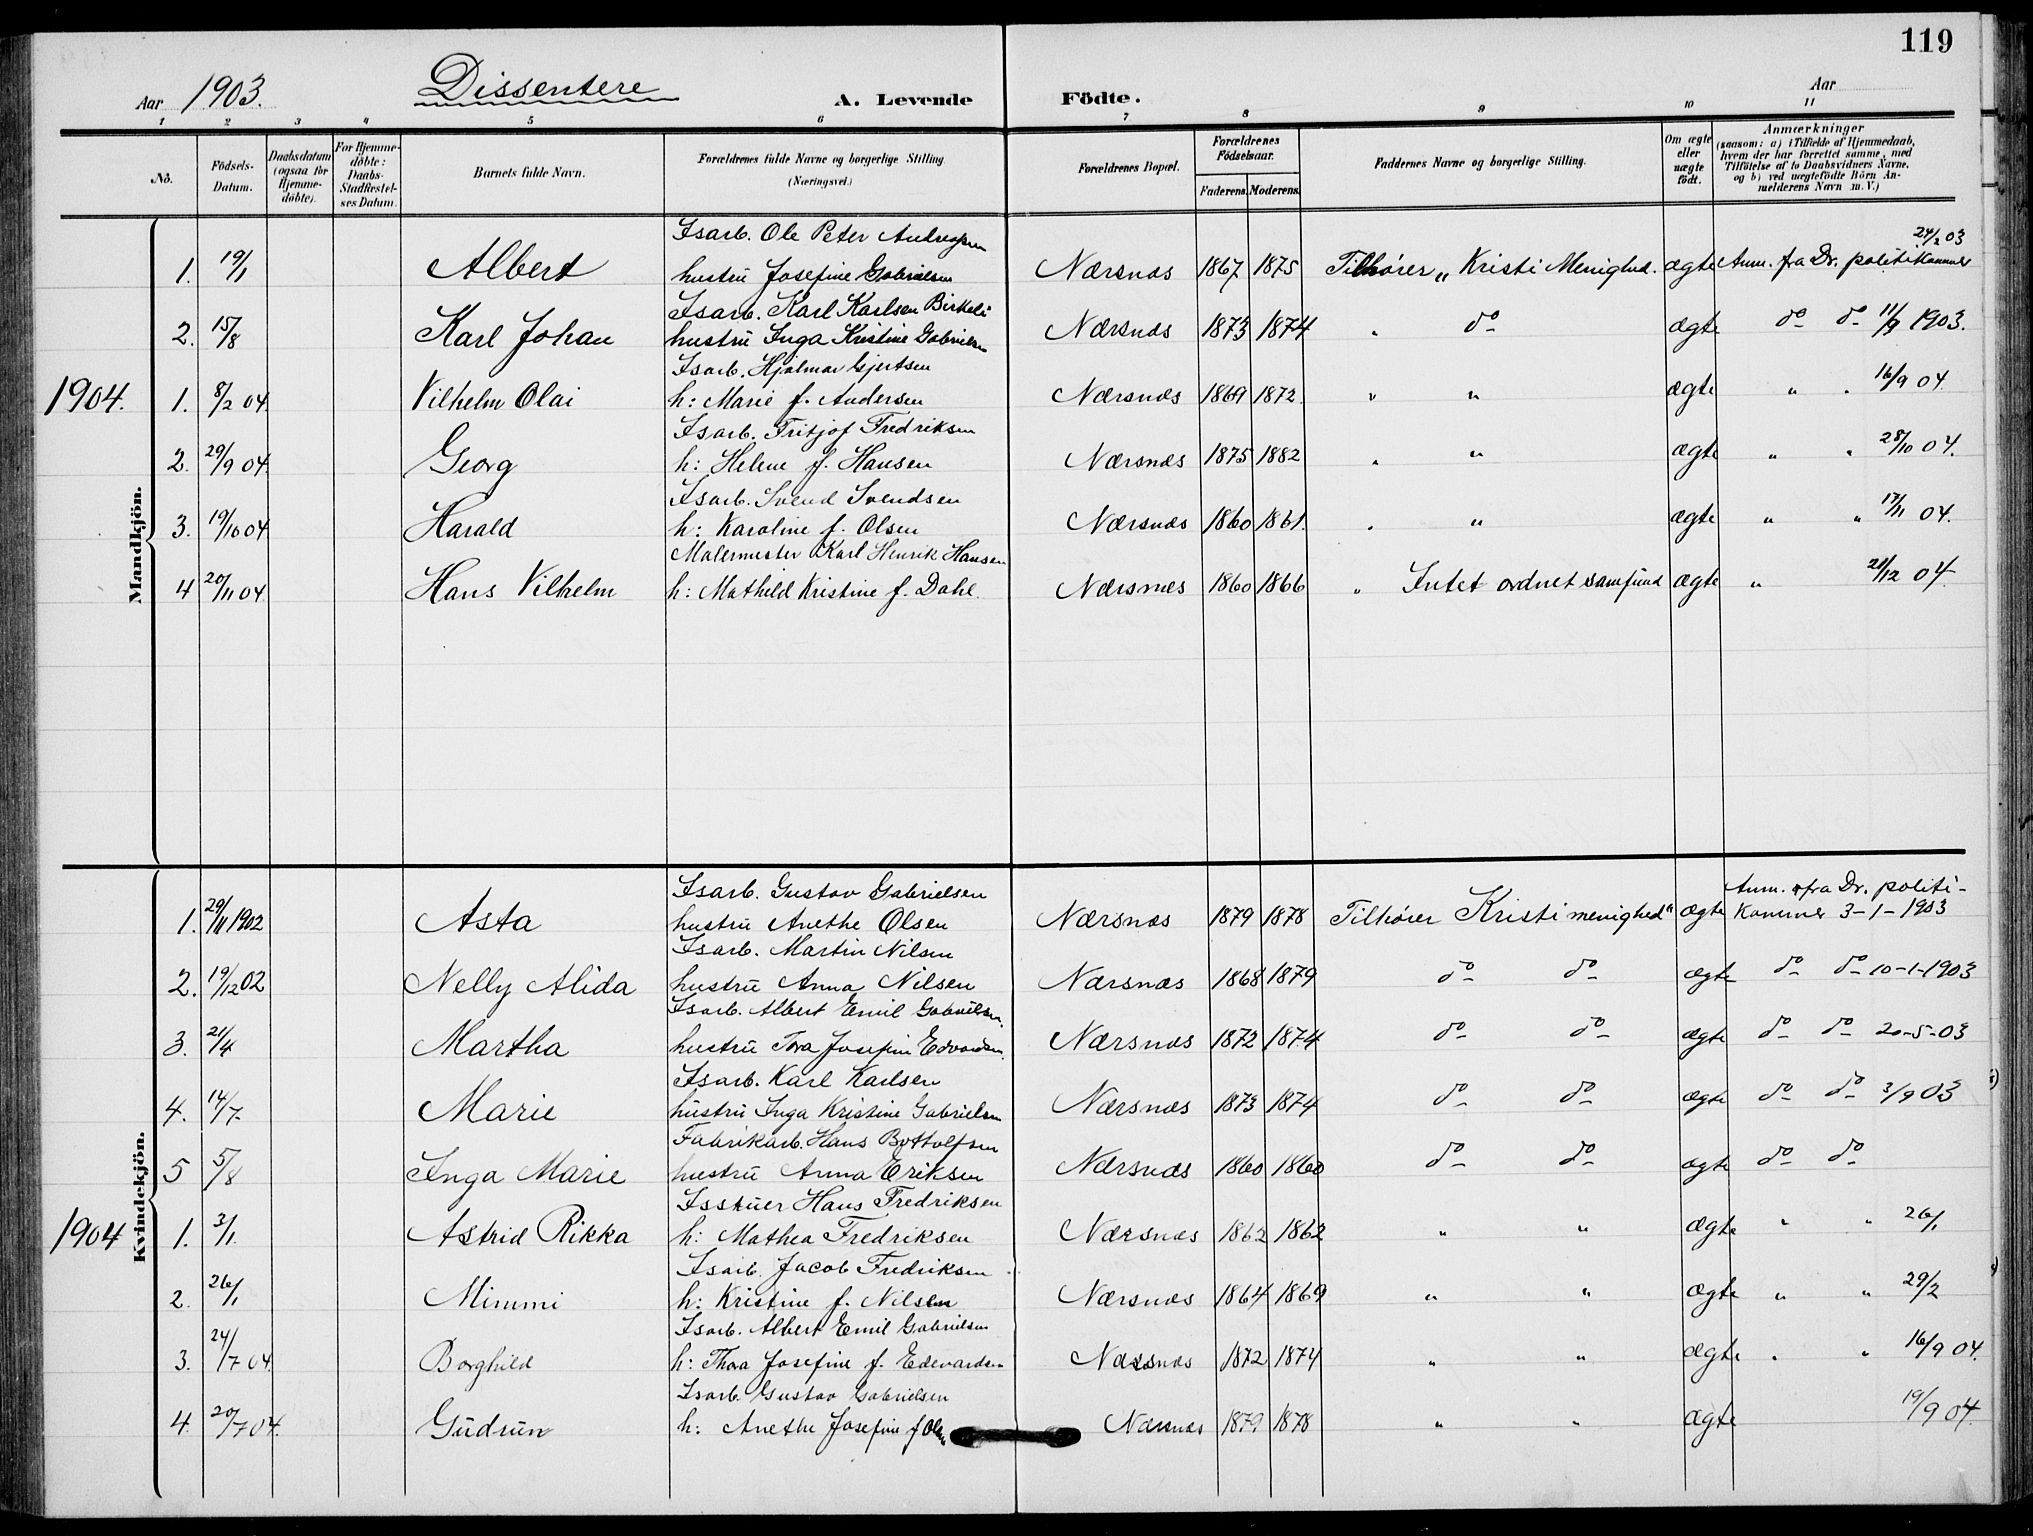 119
Aar 1903. Dissentere A. Levende Födte. Aar
1 2 3 4 5 6 7 8 9 10 11
No. Födsels-Datum. Daabsdatum (ogsaa for Hjemme-döbte). For Hjemme-döbte: Daabs-Stadfæstel-ses Datum. Barnets fulde Navn. Forældrenes fulde Navne og borgerlige Stilling. (Næringsvei.) Forældrenes Bopæl. Forældrenes Födselsaar. Faderens. Moderens. Faddernes Navne og borgerlige Stilling. Om ægte eller uægte födt. Anmærkninger (saasom: a) i Tilfælde af Hjemmedaab, hvem der har forrettet samme, med Tilföielse af to Daabsvidners Navne, og b) ved uægtefödte Börn Anmelderens Navn m. V.)
Mandkjön.
Isarb. Ole Peter Andreassen 24/2 03
1. 19/1 Albert hustru Josefine Gabrielsen Nærsnæs 1867 1875 Tilhører „Kristi Menighed. ægte Anm. fra Dr. politikammer
Isarb. Karl Karlsen Birkeli
2. 15/8 Karl Johan hustru Inga Kristine Gabrielsen Nærsnæs 1873 1874 " do ægte do do 11/9 1903.
Isarb. Hjalmar Gjertsen
1904. 1. 8/2 04. Vilhelm Olai h: Marie f. Andersen Nærsnæs 1869 1872 " " ægte " " 16/9 04.
Isarb. Fritjof Fredriksen
2. 29/9 04. Georg h: Helene f. Hansen Nærsnæs 1875 1882 " " ægte " " 28/10 04.
Isarb. Svend Svendsen
3. 19/10 04 Harald h: Karoline f. Olsen Nærsnæs 1860 1861. " " ægte " " 17/11 04.
Malermester Karl Henrik Hansen
4 20/11 04 Hans Vilhelm h: Mathild Kristine f. Dahl. Nærsnes 1860 1866 " Intet ordnet samfund ægte " 21/12 04.
Kvindekjön.
Isarb. Gustav Gabrielsen Anm. fra Dr. politi-
1. 29/11 1902 Asta hustru Anethe Olsen Nærsnæs 1879 1878 Tilhører Kristi menighed" ægte kammer 3-1-1903
Isarb. Martin Nilsen
2. 19/12 02 Nelly Alida hustru Anna Nilsen Nærsnæs 1868 1879 do do ægte do do 10-1-1903
Isarb. Albert Emil Gabrielsen.
3. 21/4 Martha hustru Tora Josefine Edvardsen. Nærsnæs 1872 1874 do do ægte do do 20-5-03
Isarb. Karl Karlsen
4. 14/7 Marie hustru Inga Kristine Gabrielsen Nærsnæs 1873 1874 do do ægte do do 3/9 03
Fabrikarb. Hans Bottolfsen
5 5/8 Inga Marie hustru Anna Eriksen Nærsnæs 1860 1860 do do ægte do do
Isskuer Hans Fredriksen
1904 1. 3/1. Astrid Rikka h: Mathea Fredriksen Nærsnæs 1862 1862 " " ægte " " 26/1
Isarb. Jacob Fredriksen
2. 26/1 Mimmi h: Kristine f. Nilsen Nærsnæs 1864 1869 " " ægte " " 29/2
Isarb. Albert Emil Gabrielsen
3. 24/7 04. Borghild h: Thora Josefine f. Edevardsen Nærsnæs 1872 1874 " " ægte " " 16/9 04.
Isarb. Gustav Gabrielsen
4. 20/7 04. Gudrun h: Anethe Josefine f Olsen Nærsnæs 1879 1878 " " ægte 19/9 04.